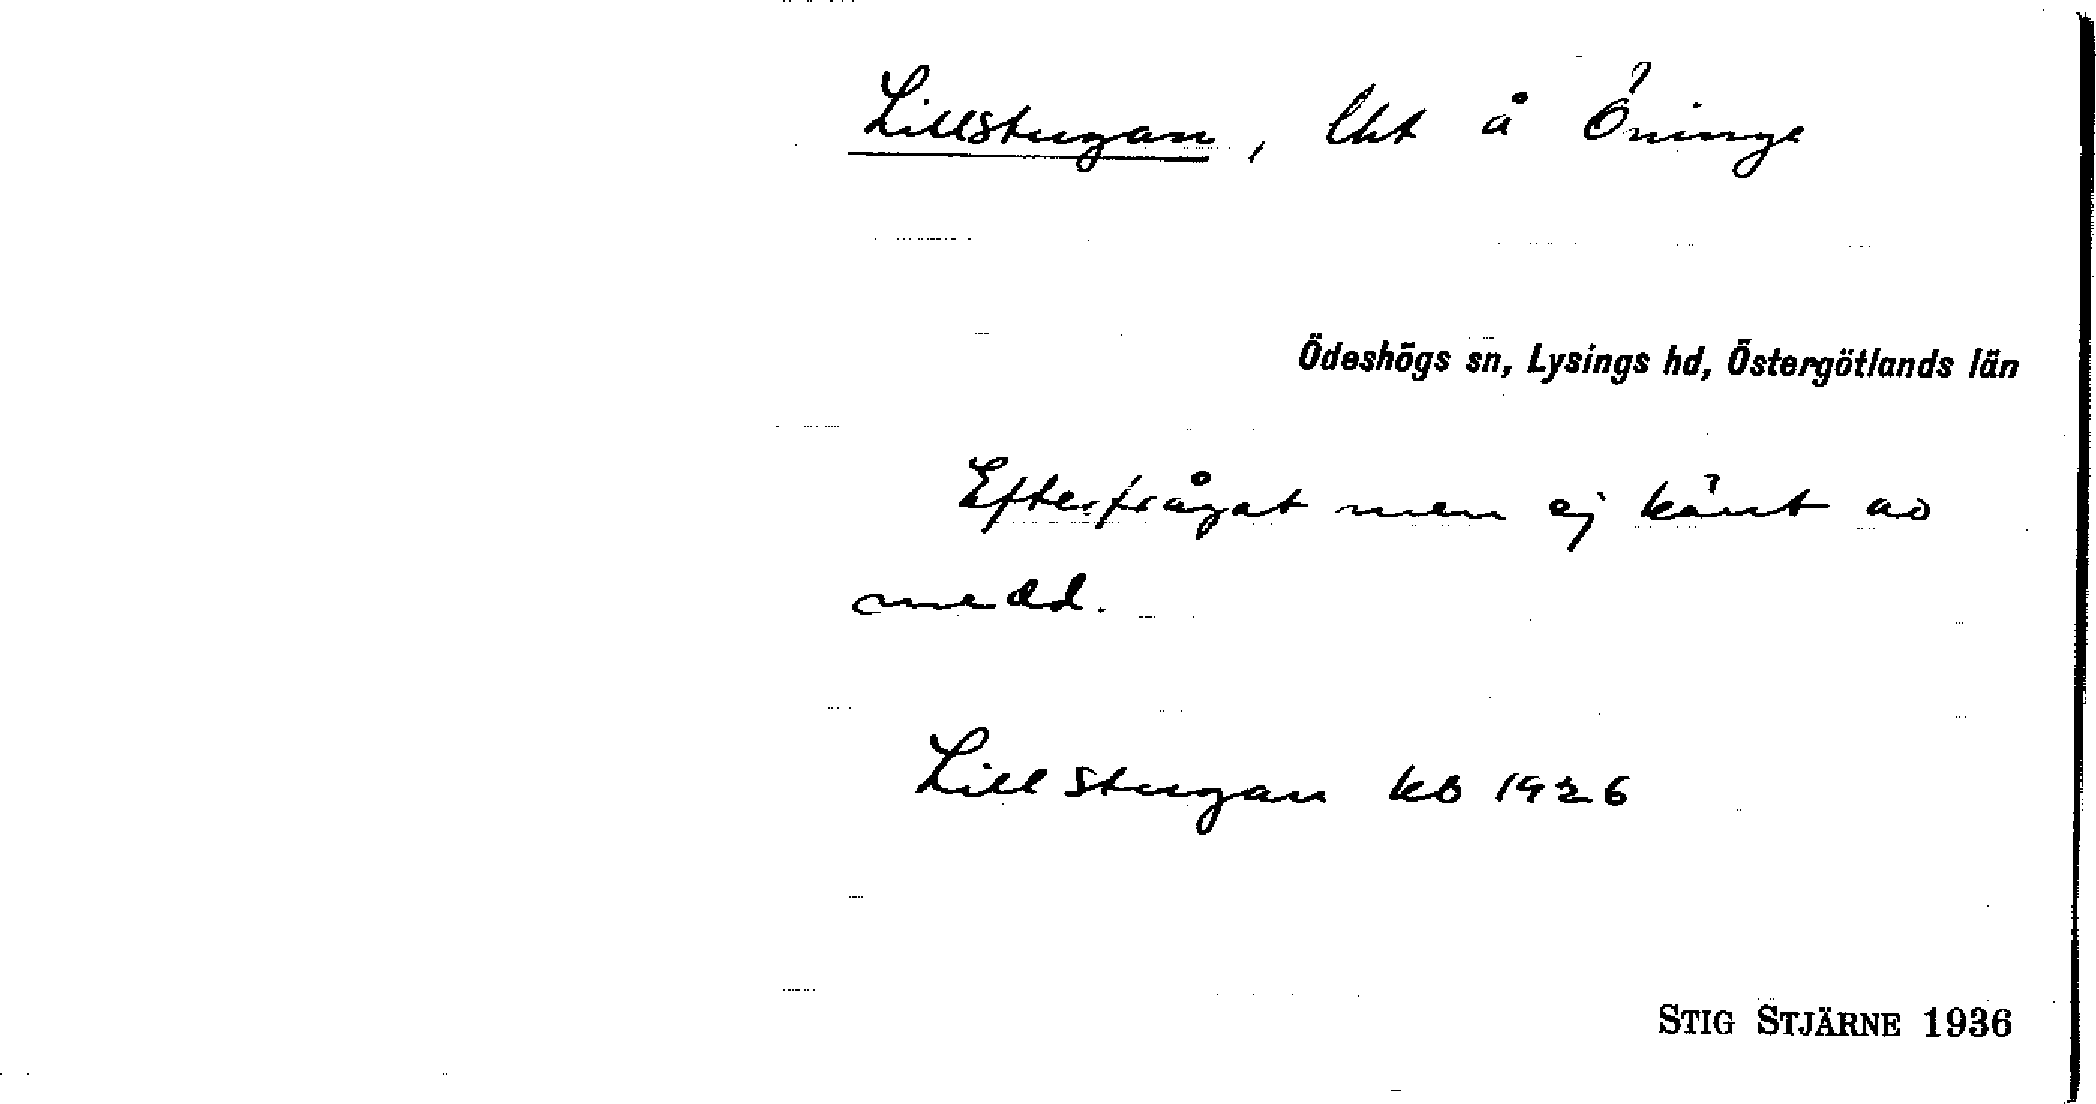 Lillstugan, lht å Öninge
Ödeshögs sn, Lysings hd, Östergötlands län
Efterfrågat men ej känt av
medd.
Lillstugan kb 1926
STIG STJÄRNE 1936